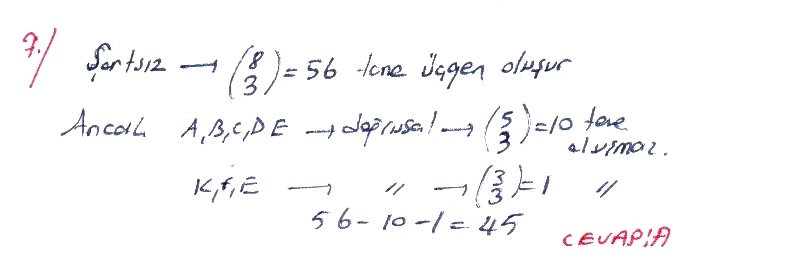 7.) Şartsız → (8 3) = 56 tane üçgen oluşur
Ancak A,B,C,D E → doğrusal → (5 3) = 10 tane
oluşmaz.
K,F,E → " → (3 3) = 1 "
56 - 10 - 1 = 45
CEVAP: A